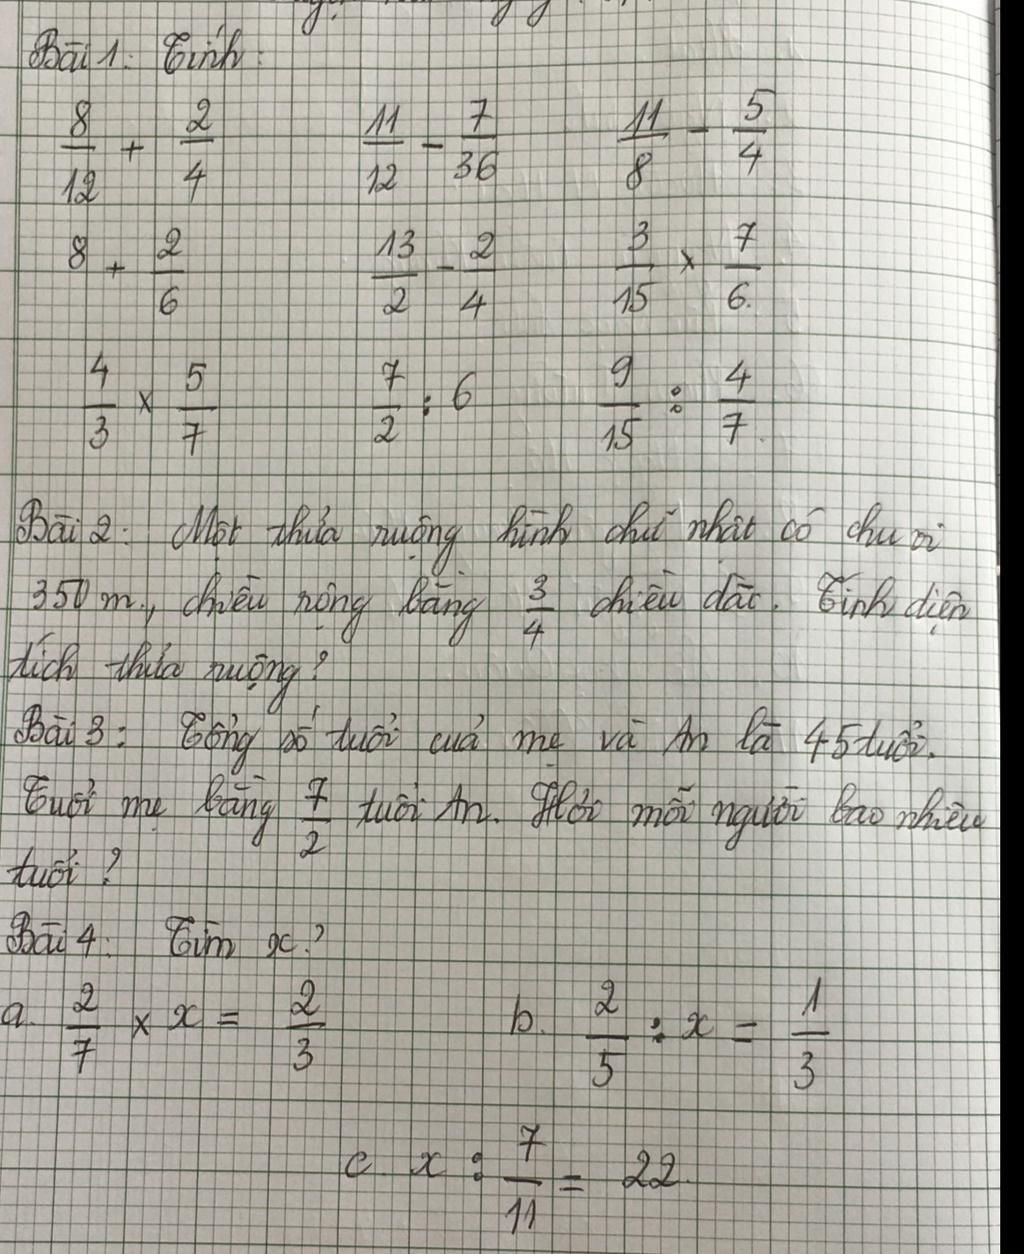 Bài 1: Tính:
8/12 + 2/4    11/12 - 7/36    11/8 - 5/4
8 + 2/6    13/2 - 2/4    3/15 x 7/6.
4/3 x 5/7    7/2 : 6    9/15 : 4/7.
Bài 2: Một thửa ruộng hình chữ nhật có chu vi
350 m., chiều rộng bằng 3/4 chiều dài. Tính diện
tích thửa ruộng?
Bài 3: Tổng số tuổi của mẹ và An là 45 tuổi.
Tuổi mẹ bằng 7/2 tuổi An. Hỏi mỗi người bao nhiêu
tuổi?
Bài 4: Tìm x?
a. 2/7 x x = 2/3    b. 2/5 : x = 1/3
c x : 7/11 = 22.